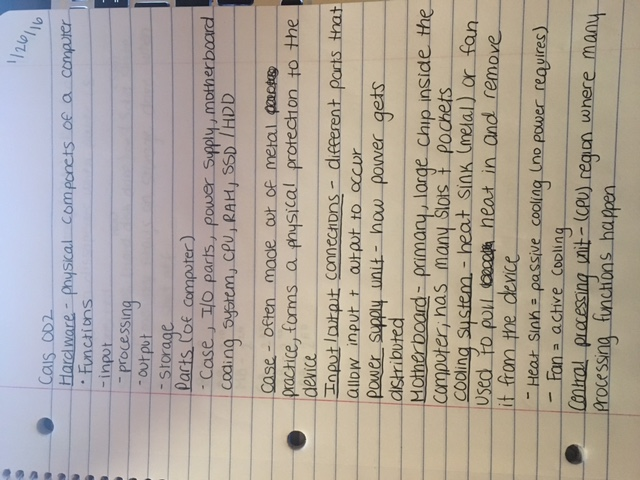 1/26/16
Cals 002
Hardware - physical componets of a computer
• Functions
- input
- processing
- output
- storage
Parts (of computer)
- Case, I/O parts, power supply, motherboard
cooling system, CPU, RAM, SSD/HDD
Case - often made out of metal
practice, forms a physical protection to the
device
Input/output connections - different parts that
allow input + output to occur
Power supply unit - how power gets
distributed
Motherboard - primary, large chip inside the
computer, has many slots + pockets
cooling system - heat sink (metal) or fan
used to pull heat in and remove
it from the device
- Heat sink = passive cooling (no power requires)
- Fan = active cooling
Central processing unit - (CPU) region where many
processing functions happen